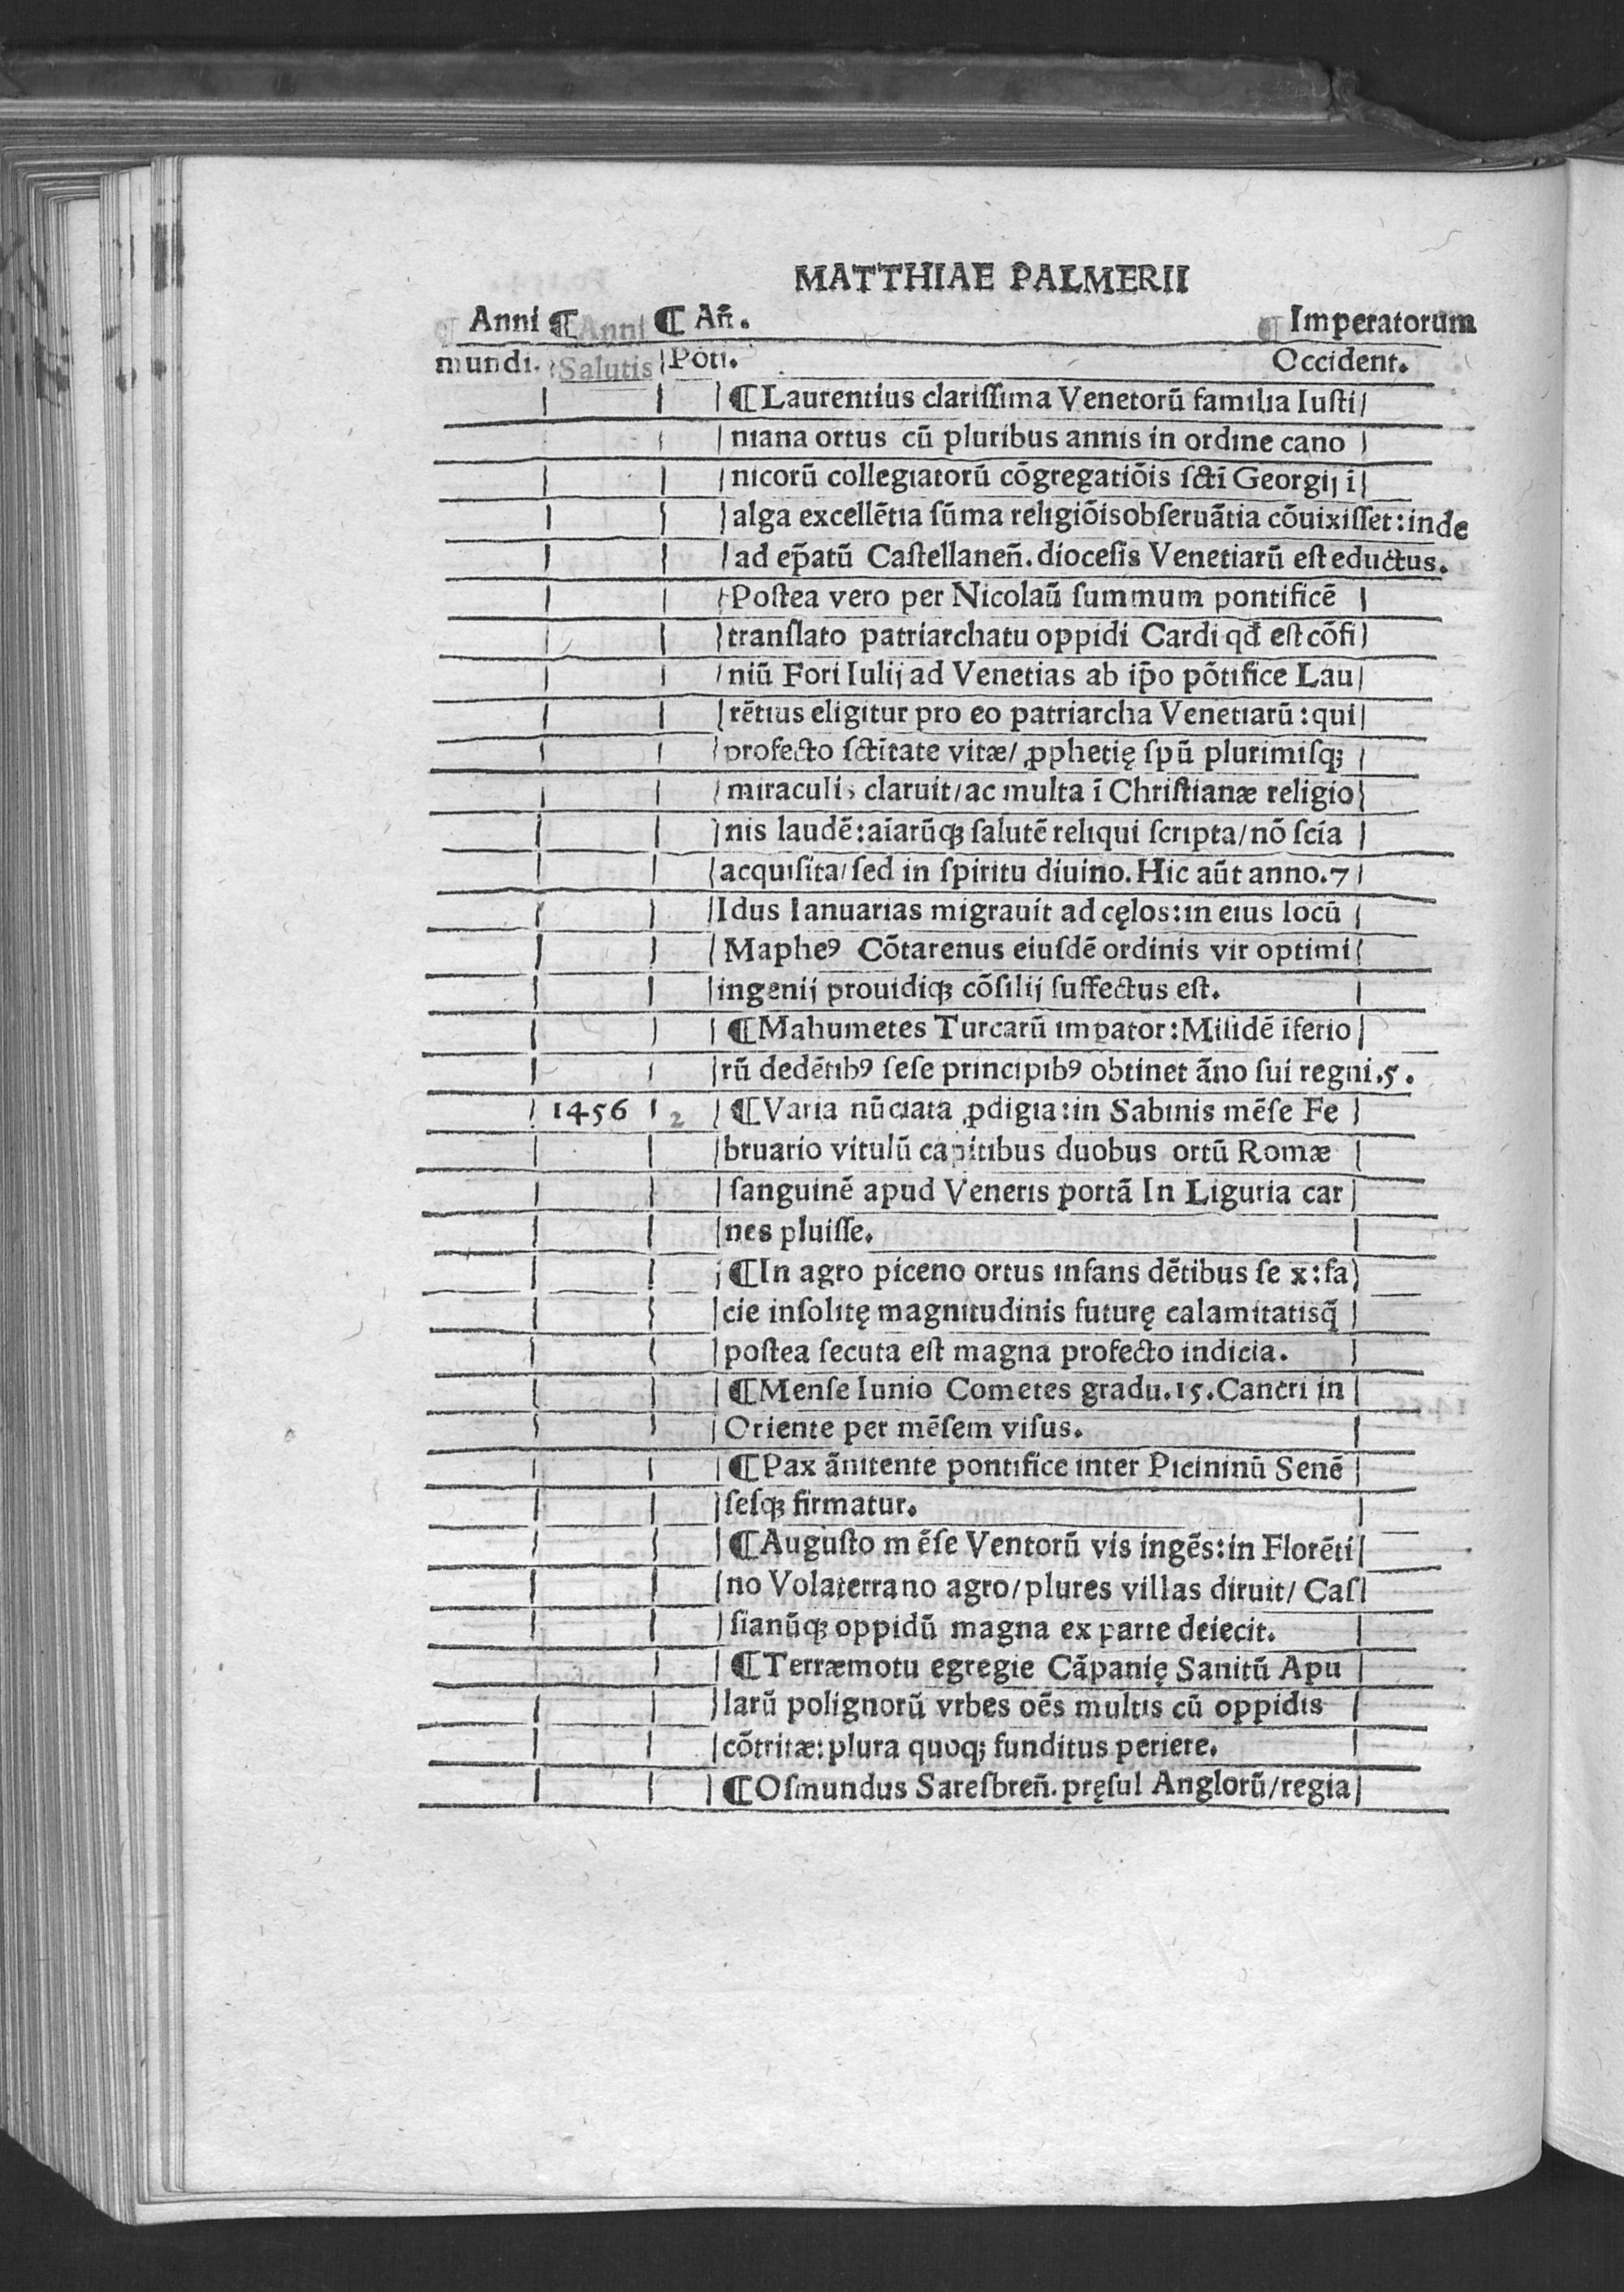 MATTHIAE PALMERII
Anni ¶ Anni ¶ Añ. ¶ Imperatorum
mundi. Salutis Pōti. Occident.
¶ Laurentius clarissima Venetorū familia Iusti/
niana ortus cū pluribus annis in ordine cano
nicorū collegiatorū cōgregatiōis sctī Georgij ī
alga excellētia sūma religiōisobseruātia cōuixisset: inde
ad ep̄atū Castellaneñ. diocesis Venetiarū est eductus.
Postea vero per Nicolaū summum pontificē
translato patriarchatu oppidi Cardi qđ est cōfi
niū Fori Iulij ad Venetias ab ip̄o pōtifice Lau
rētius eligitur pro eo patriarcha Venetiarū: qui
profecto sctītate vitæ/ ꝓphetię spū plurimisqꝫ
miraculis claruit/ ac multa ī Christianæ religio
nis laudē: aīarūqꝫ salutē reliqui scripta/ nō scīa
acquisita/ sed in spiritu diuino. Hic aūt anno. 7
Idus Ianuarias migrauit ad cęlos: in eius locū
Mapheꝰ Cōtarenus eiusdē ordinis vir optimi
ingenij prouidiqꝫ cōsilij suffectus est.
¶ Mahumetes Turcarū impator: Misidē īferio
rū dedētibꝰ sese principibꝰ obtinet āno sui regni. 5.
1456 2 ¶ Varia nūciata ꝓdigia: in Sabinis mēse Fe
bruario vitulū capitibus duobus ortū Romæ
sanguinē apud Veneris portā In Liguria car
nes pluisse.
¶ In agro piceno ortus infans dētibus se x: fa
cie insolitę magnitudinis futurę calamitatisq̄
postea secuta est magna profecto indicia.
¶ Mense Iunio Cometes gradu. 15. Cancri in
Oriente per mēsem visus.
¶ Pax ānitente pontifice inter Picininū Senē
sesqꝫ firmatur.
¶ Augusto m ēse Ventorū vis ingēs: in Florēti
no Volaterrano agro/ plures villas diruit/ Cas
sianūqꝫ oppidū magna ex parte deiecit.
¶ Terræmotu egregie Cāpanię Sanitū Apu
larū polignorū vrbes oēs multis cū oppidis
cōtritæ: plura quoqꝫ funditus periere.
¶ Osmundus Saresbreñ. pręsul Anglorū/ regia